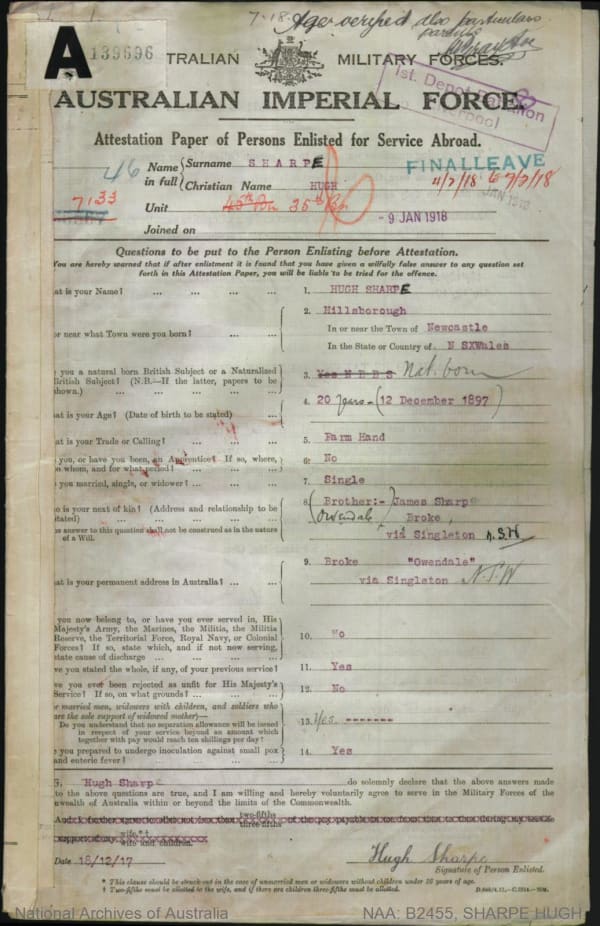 7-18 Age verified also particulars
parents
A 139696
TRALIAN MILITARY FORCES.
1st. Depot Battalion
Liverpool
AUSTRALIAN IMPERIAL FORCE.
Attestation Paper of Persons Enlisted for Service Abroad.
46 Name in full { Surname SHARPE
Christian Name HUGH
FINAL LEAVE
4/7/18 to 9/7/18
JAN 1918
7133
Unit 45th Bn 35th Bn
Joined on - 9 JAN 1918
Questions to be put to the Person Enlisting before Attestation.
You are hereby warned that if after enlistment it is found that you have given a wilfully false answer to any question set
forth in this Attestation Paper, you will be liable to be tried for the offence.
at is your Name? ... ... ... ... 1. HUGH SHARPE
2. Hillsborough
or near what Town were you born? ... ... In or near the Town of Newcastle
In the State or Country of N SXWales
you a natural born British Subject or a Naturalized
British Subject? (N.B.—If the latter, papers to be
shown.) ... ... ... ... 3. Yes N B B S Nat. born
at is your Age? (Date of birth to be stated) ... 4. 20 years - (12 December 1897)
at is your Trade or Calling? ... ... ... 5. Farm Hand
you, or have you been, an Apprentice? If so, where,
o whom, and for what period? ... ... ... 6. No
you married, single, or widower? ... ... ... 7. Single
o is your next of kin? (Address and relationship to be
stated) ... ... ... ... 8. (Brother:-) James Sharpe
(Owendale Broke,
is answer to this question shall not be construed as in the nature
of a Will.
via Singleton N.S.W
9. Broke "Owendale"
at is your permanent address in Australia? ... ... via Singleton N.S.W
you now belong to, or have you ever served in, His
Majesty's Army, the Marines, the Militia, the Militia
Reserve, the Territorial Force, Royal Navy, or Colonial
Forces? If so, state which, and if not now serving,
state cause of discharge ... ... ... ... 10. No
ve you stated the whole, if any, of your previous service? 11. Yes
ve you ever been rejected as unfit for His Majesty's
Service? If so, on what grounds? ... ... ... 12. No
r married men, widowers with children, and soldiers who
are the sole support of widowed mother)—
Do you understand that no separation allowance will be issued
in respect of your service beyond an amount which
together with pay would reach ten shillings per day? 13. Yes. -------
you prepared to undergo inoculation against small pox
and enteric fever? ... ... ... ... 14. Yes
I, Hugh Sharpe do solemnly declare that the above answers made
to the above questions are true, and I am willing and hereby voluntarily agree to serve in the Military Forces of the
nwealth of Australia within or beyond the limits of the Commonwealth.
And I further agree to allot not less than two-fifths three-fifths of the pay payable to me from time to time during my service
support of my wife.*†
wife and children.
Date 18/12/17
Hugh Sharpe
Signature of Person Enlisted.
* This clause should be struck out in the case of unmarried men or widowers without children under 16 years of age.
† Two-fifths must be allotted to the wife, and if there are children three-fifths must be allotted.
National Archives of Australia NAA: B2455, SHARPE HUGH